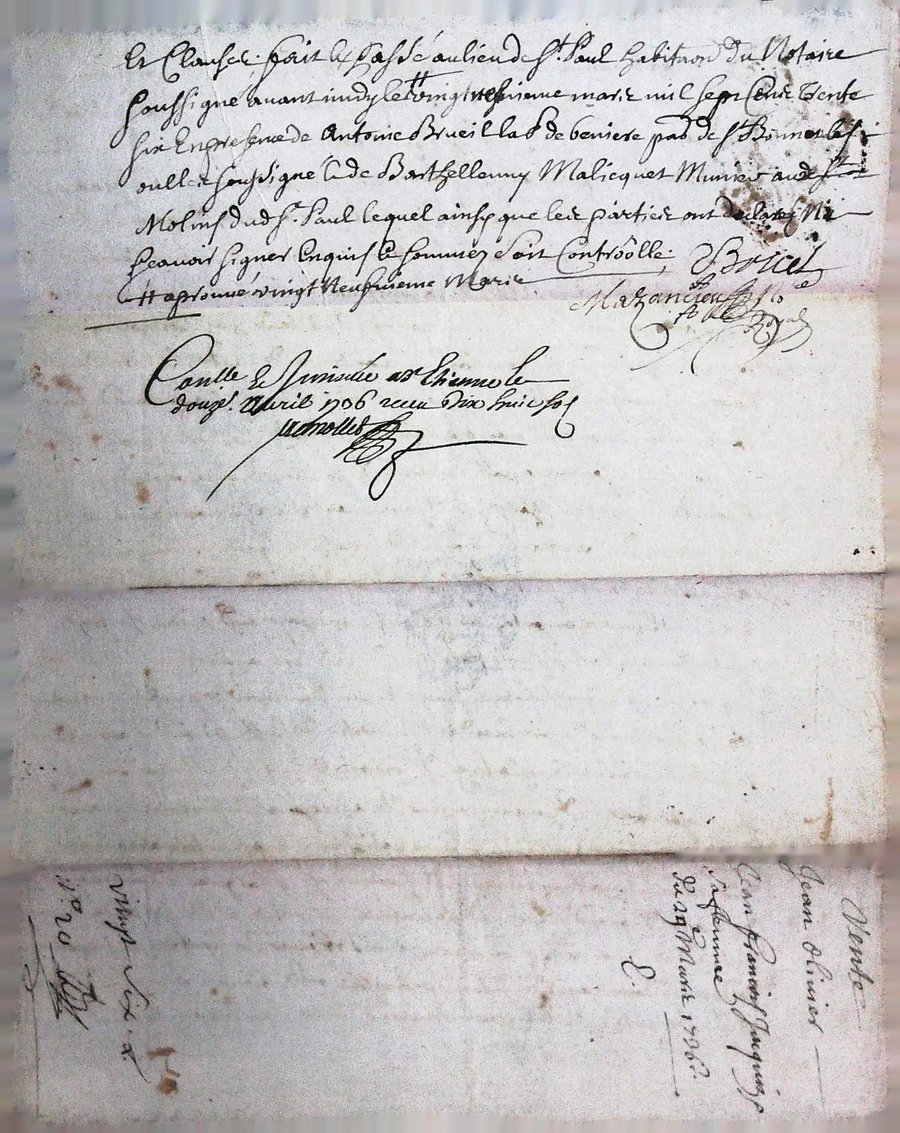 Et Clauses: fait et passé au lieu de St Paul habita͠on du Notaire
soussigné avant midy le vingt neufvieme mars mil sept cents trente
six En presence de Antoine Brueil lab de de St Bonnet les
oulles soussigné & de Barthellemy Malicquet Munier aux
Molins dud St Paul lequel ainsy que les parties ont declarés Ni
sçavoir signer Enquis & sommez soit Controolle.
# aprouvé vingt Neufvieme Mars
No Royal
Conlle & Insinué a St Etienne le
douze Avril 1736 recu dix huit sols
Vente
Jean Olivier
Jean francois Jacquin &
sa femme
du 29 Mars 1736
vingt six
n° 20